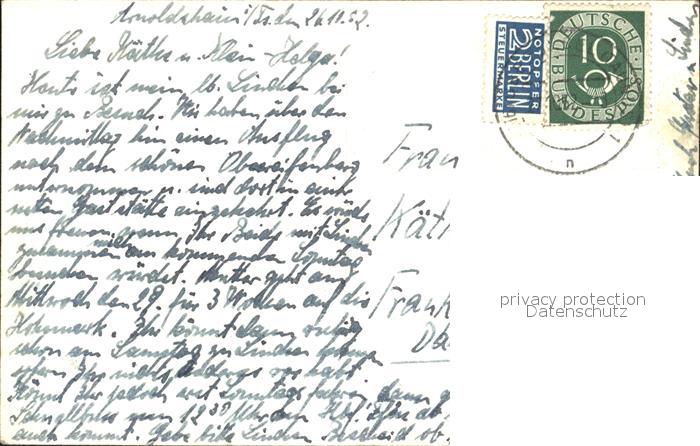 Arnoldshain i/Ts. den 26.10.52.
Liebe Käthe u. Klein-Helga!
Heute ist mein lb. Linchen bei
mir zu Besuch. Wir haben über den
Nachmittag hin einen Ausflug
nach dem schönen Oberreifenberg
unternommen u. sind dort in einer
netten Gaststätte eingekehrt. Es würde
uns freuen, wenn Ihr Beide mit Linchen
zusammen mich am kommenden Sonntag
besuchen würdet. Mutter geht am
Mittwoch den 29. für 3 Wochen auf die
Hohemark. Ihr könnt dann ruhig
schon am Samstag zu Linchen kommen
sofern Ihr nichts anderes vor habt.
Könnt Ihr jedoch erst Sonntags fahren, dann
Schnellbus um 12 Uhr am Hbf.
auch kommt. Gebe bitte Linchen Bescheid ob
NOTOPFER
2 BERLIN
STEUERMARKE
DEUTSCHE
10
BUNDESPOST
n
Frau
Kät
Frank
privacy protection
Datenschutz